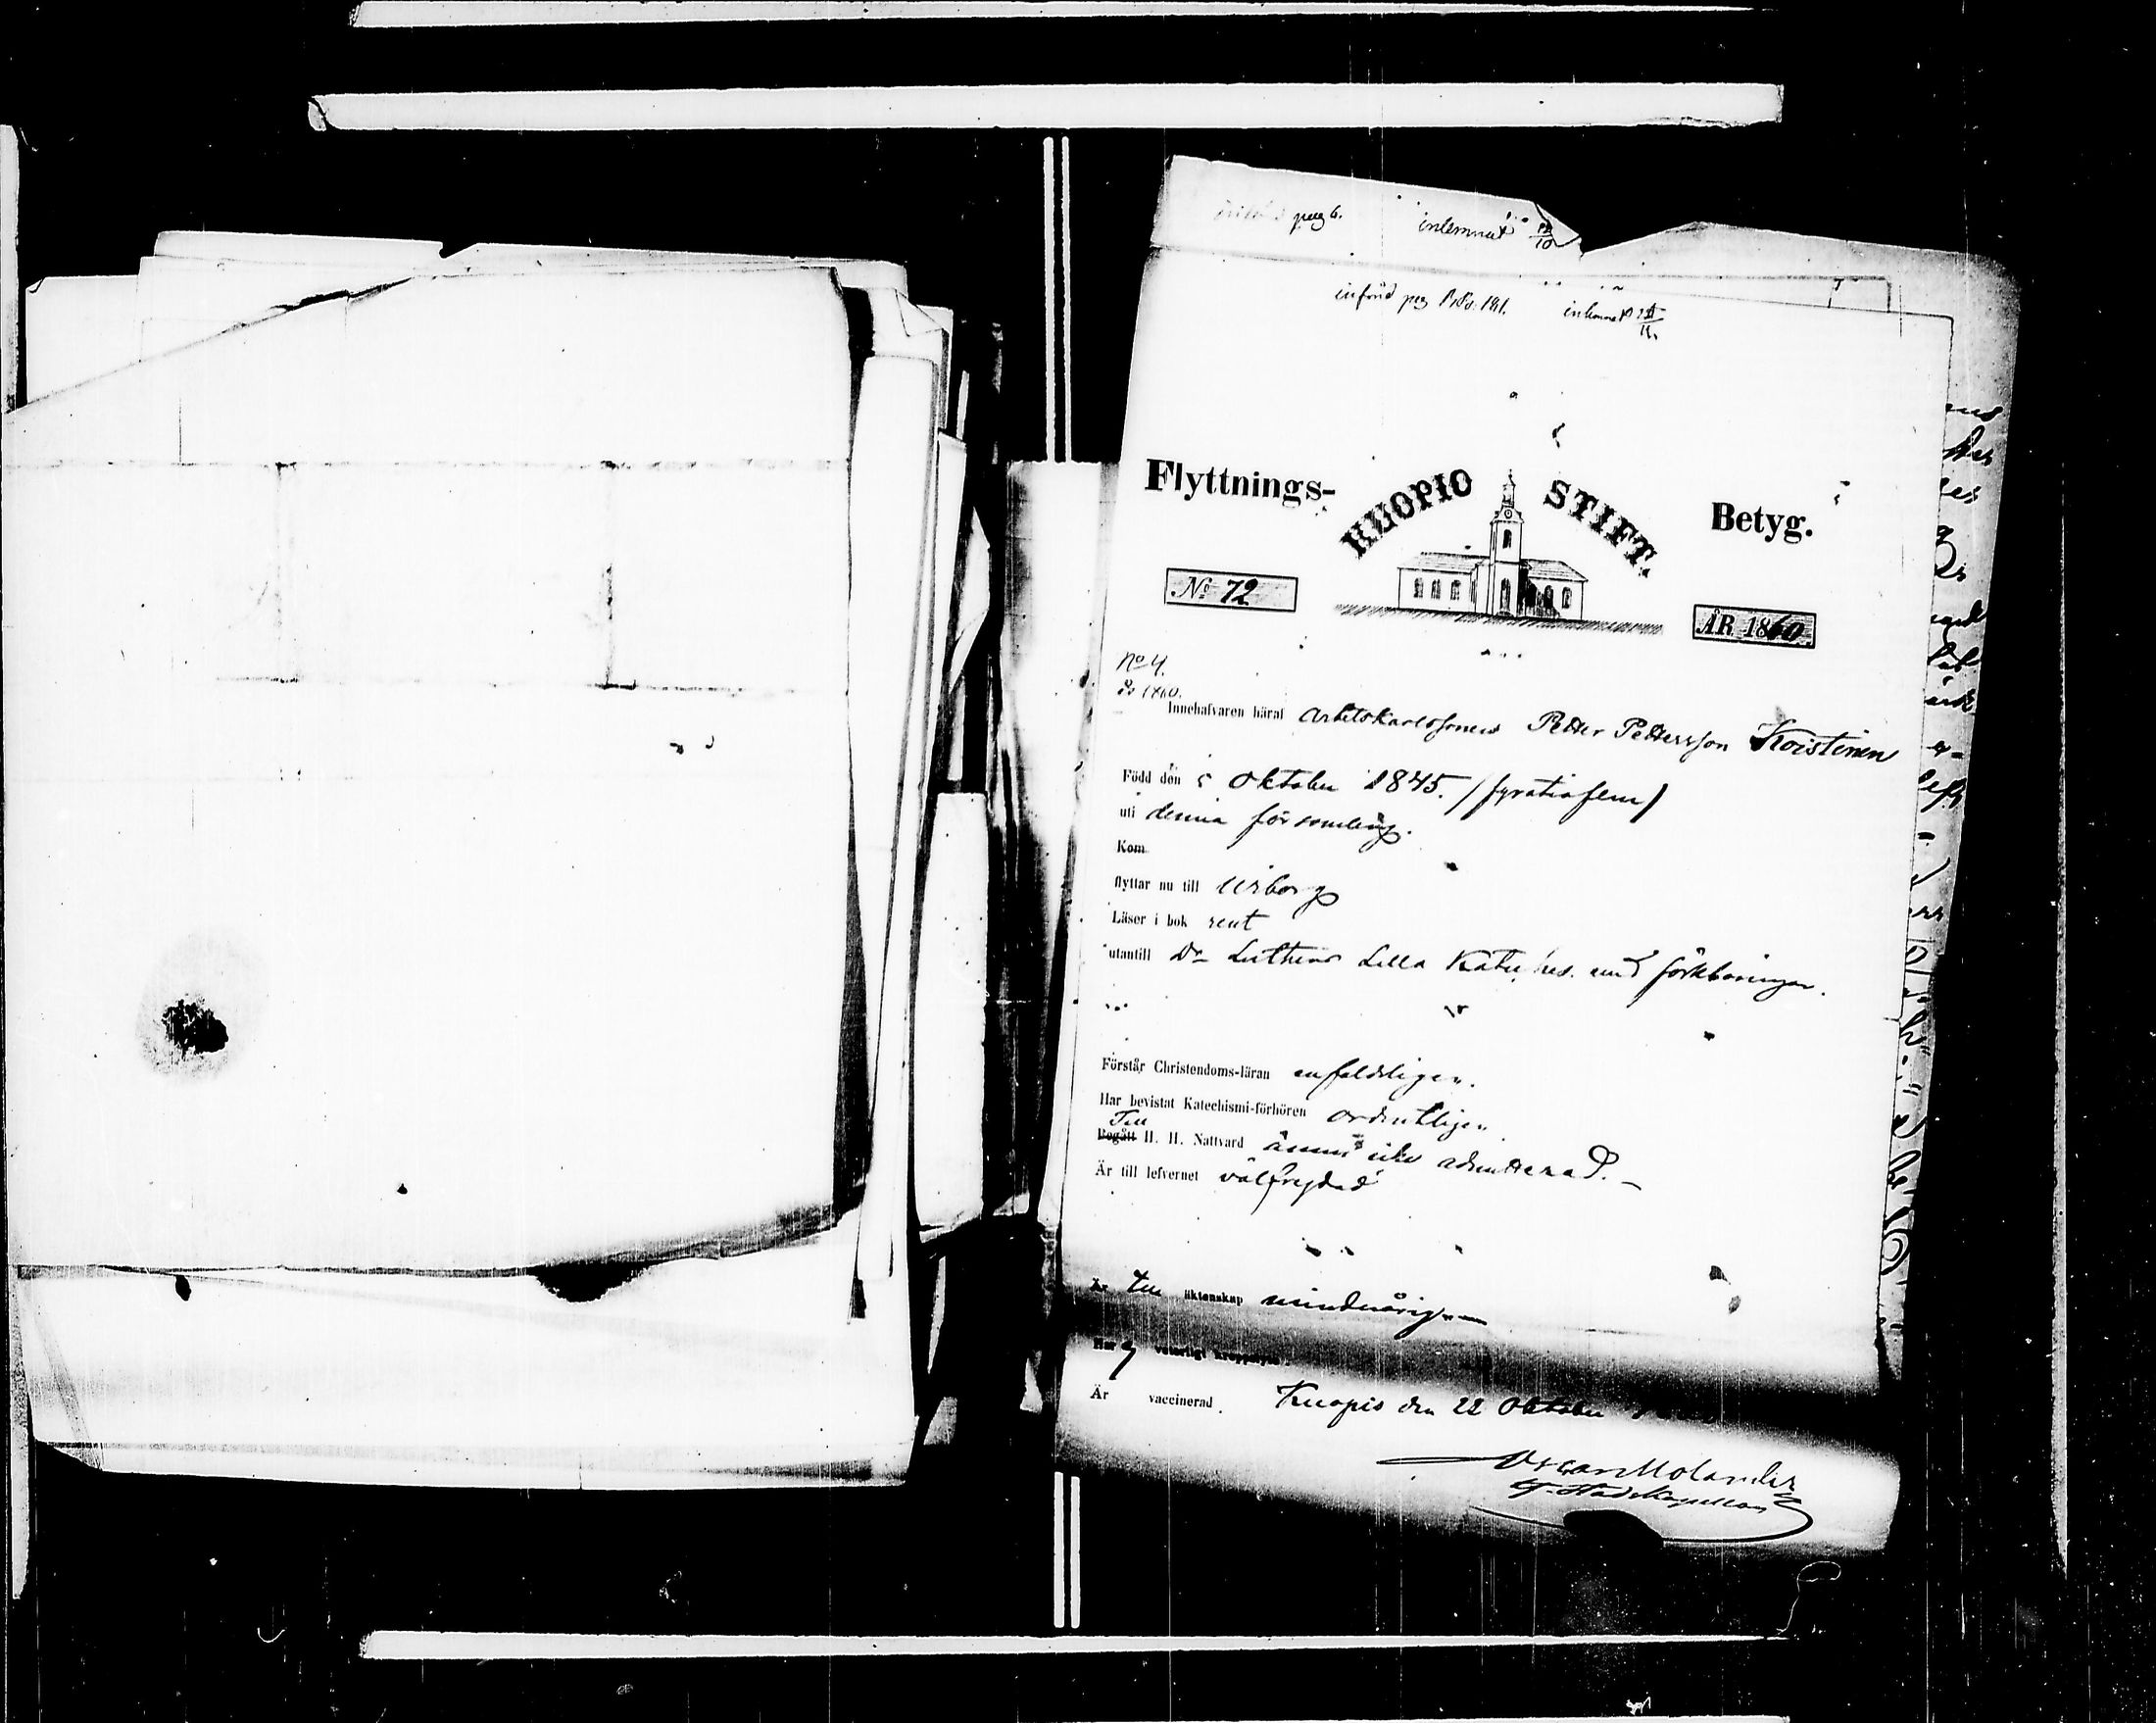 pag 6. inlemnat 12/10
införd pag No. 181. inlemnat
Flyttnings- KUOPIO STIFT. Betyg.
No 72
ÅR 1860.
No 4.
1860.
Innehafvaren häraf Arbetskarlssonen Petter Pettersson Koistinen
Född den 5 Oktober 1845. /fyratiofem/
uti denna församling.
Kom
flyttar nu till Wiborg
Läser i bok rent
utantill Dr Luthers Lilla Kateches. med förklaringar.
Förstår Christendoms-läran enfaldeligen.
Har bevistat Katechismi-förhören ordentligen
Till
Begått H. H. Nattvard ännu icke admitterad. -
Är till lefvernet välfrejdad
Är till äktenskap minderårig. -
Har ej
Är vaccinerad. Kuopio den 22 Oktober
Oscar Molander
Stadskapellan